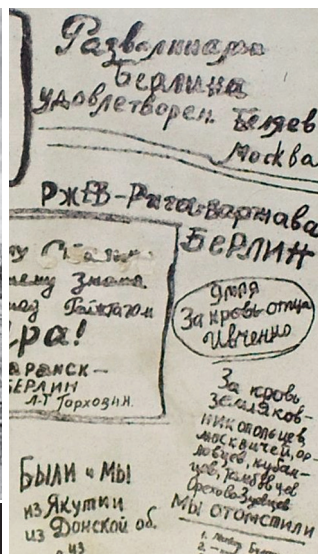 Развалинами
Берлина
удовлетворен Беляев
Москва
Ржев-Рига-Варшава
БЕРЛИН
Знамя
над Рейхстагом
Ура!
БЕРЛИН
Л-Т Горхозин
Умря
За кровь отца
Ивченко
За кровь
земляков-
никопольцев,
москвичей, ор-
ловцев, кубан-
цев, тамбовцев
Орехово Зуевцев
МЫ ОТОМСТИЛИ
БЫЛИ и МЫ
из Якутии
из Донской об.
из